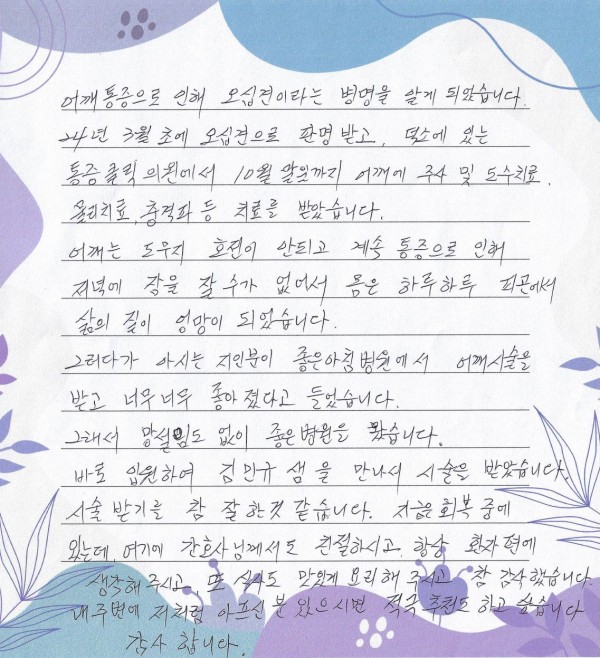 어깨통증으로 인해 오십견이라는 병명을 알게 되었습니다.
24년 3월 초에 오십견으로 판명 받고, 덕소에 있는
통증클릭의원에서 10월 말일까지 어깨에 주사 및 도수치료,
물리치료, 충격파 등 치료를 받았습니다.
어깨는 도무지 호전이 안되고 계속 통증으로 인해
저녁에 잠을 잘 수가 없어서 몸은 하루하루 피곤에서
삶의 질이 엉망이 되었습니다.
그러다가 아시는 지인분이 좋은아침병원에서 어깨시술을
받고 너무너무 좋아졌다고 들었습니다.
그래서 망설임도 없이 좋은병원을 봤습니다.
바로 입원하여 김민규 샘을 만나서 시술을 받았습니다.
시술 받기를 참 잘한것 같습니다. 지금은 회복 중에
있는데 여기에 간호사님께서도 친절하시고 항상 환자편에
생각해 주시고, 또 식사도 맛있게 요리해 주시고 참 감사했습니다.
내 주변에 저처럼 아프신 분 있으시면 적극 추천도 하고 싶습니다
감사 합니다.